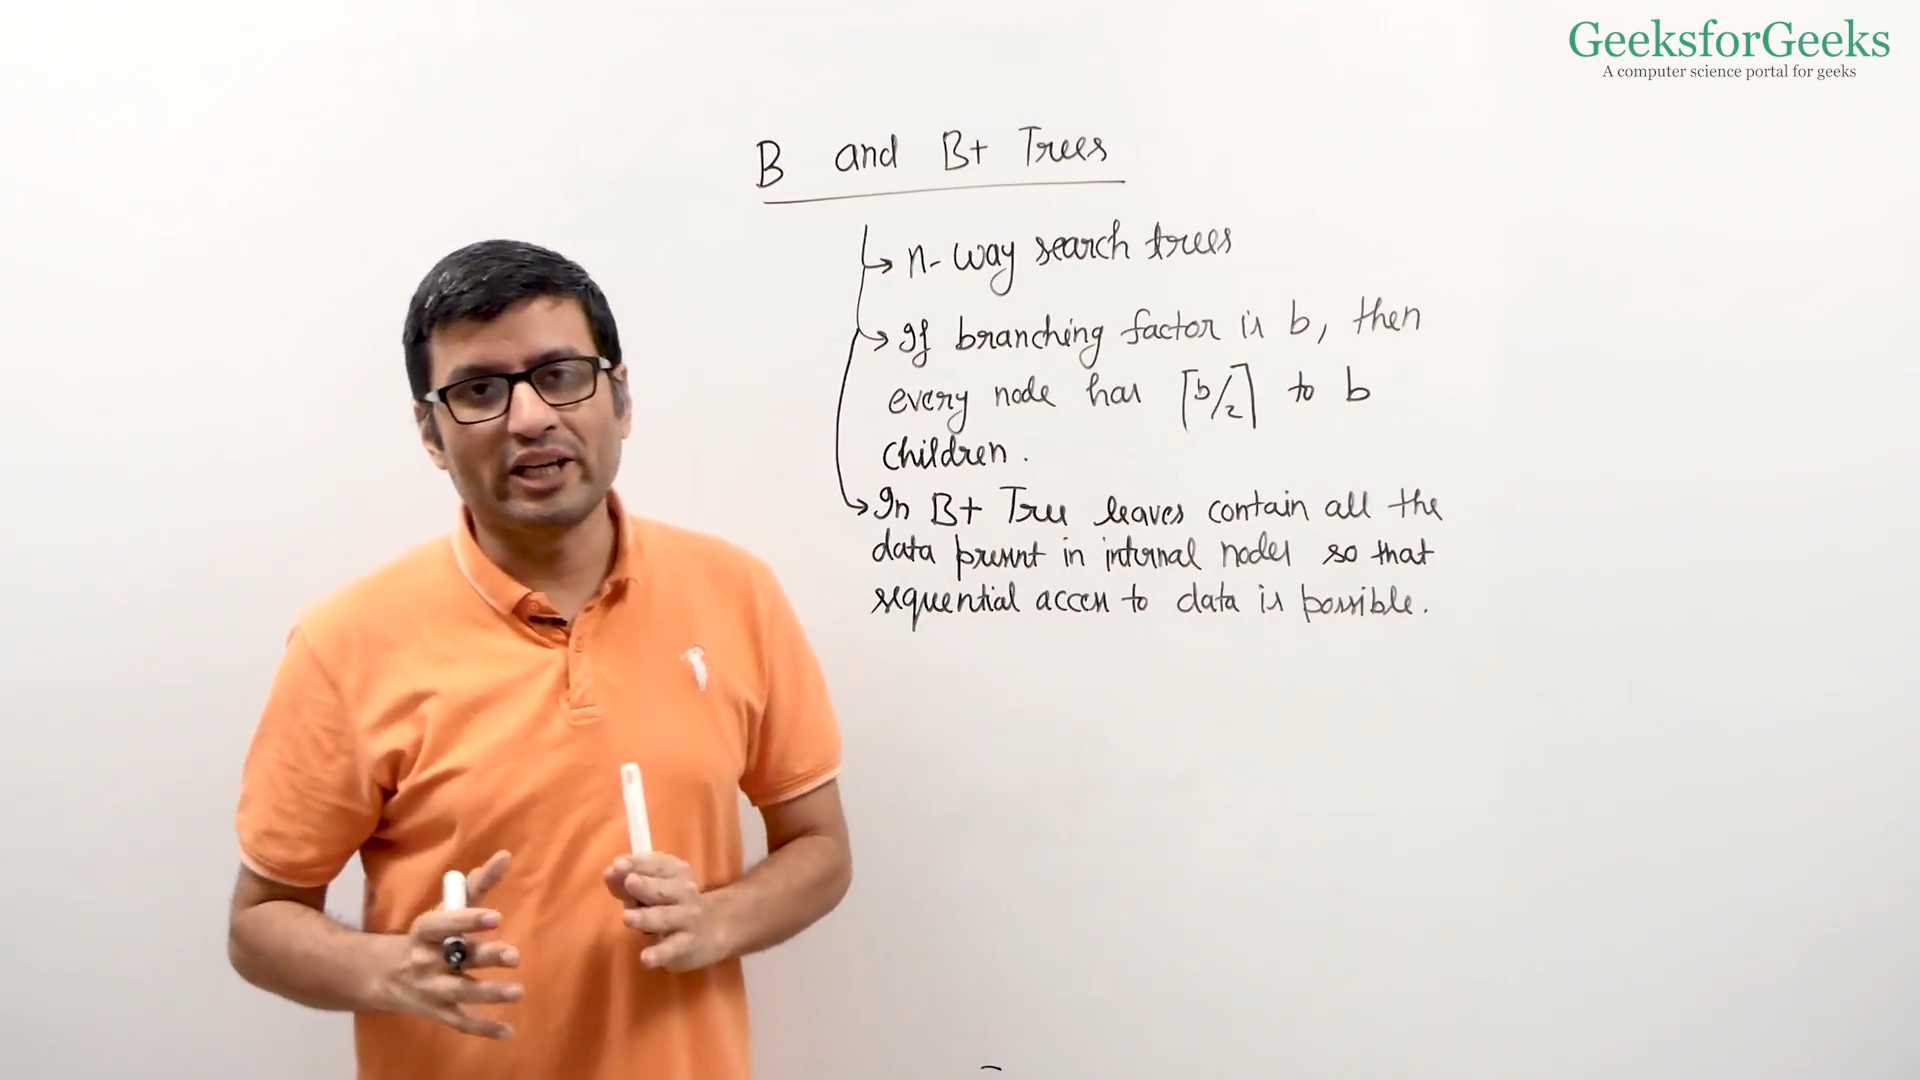 GeeksforGeeks
A computer science portal for geeks
B and B+ Trees
↳ n-way search trees
↳ If branching factor is b, then
every node has ⌈b/2⌉ to b
children.
↳ In B+ Tree leaves contain all the
data present in internal nodes so that
sequential access to data is possible.